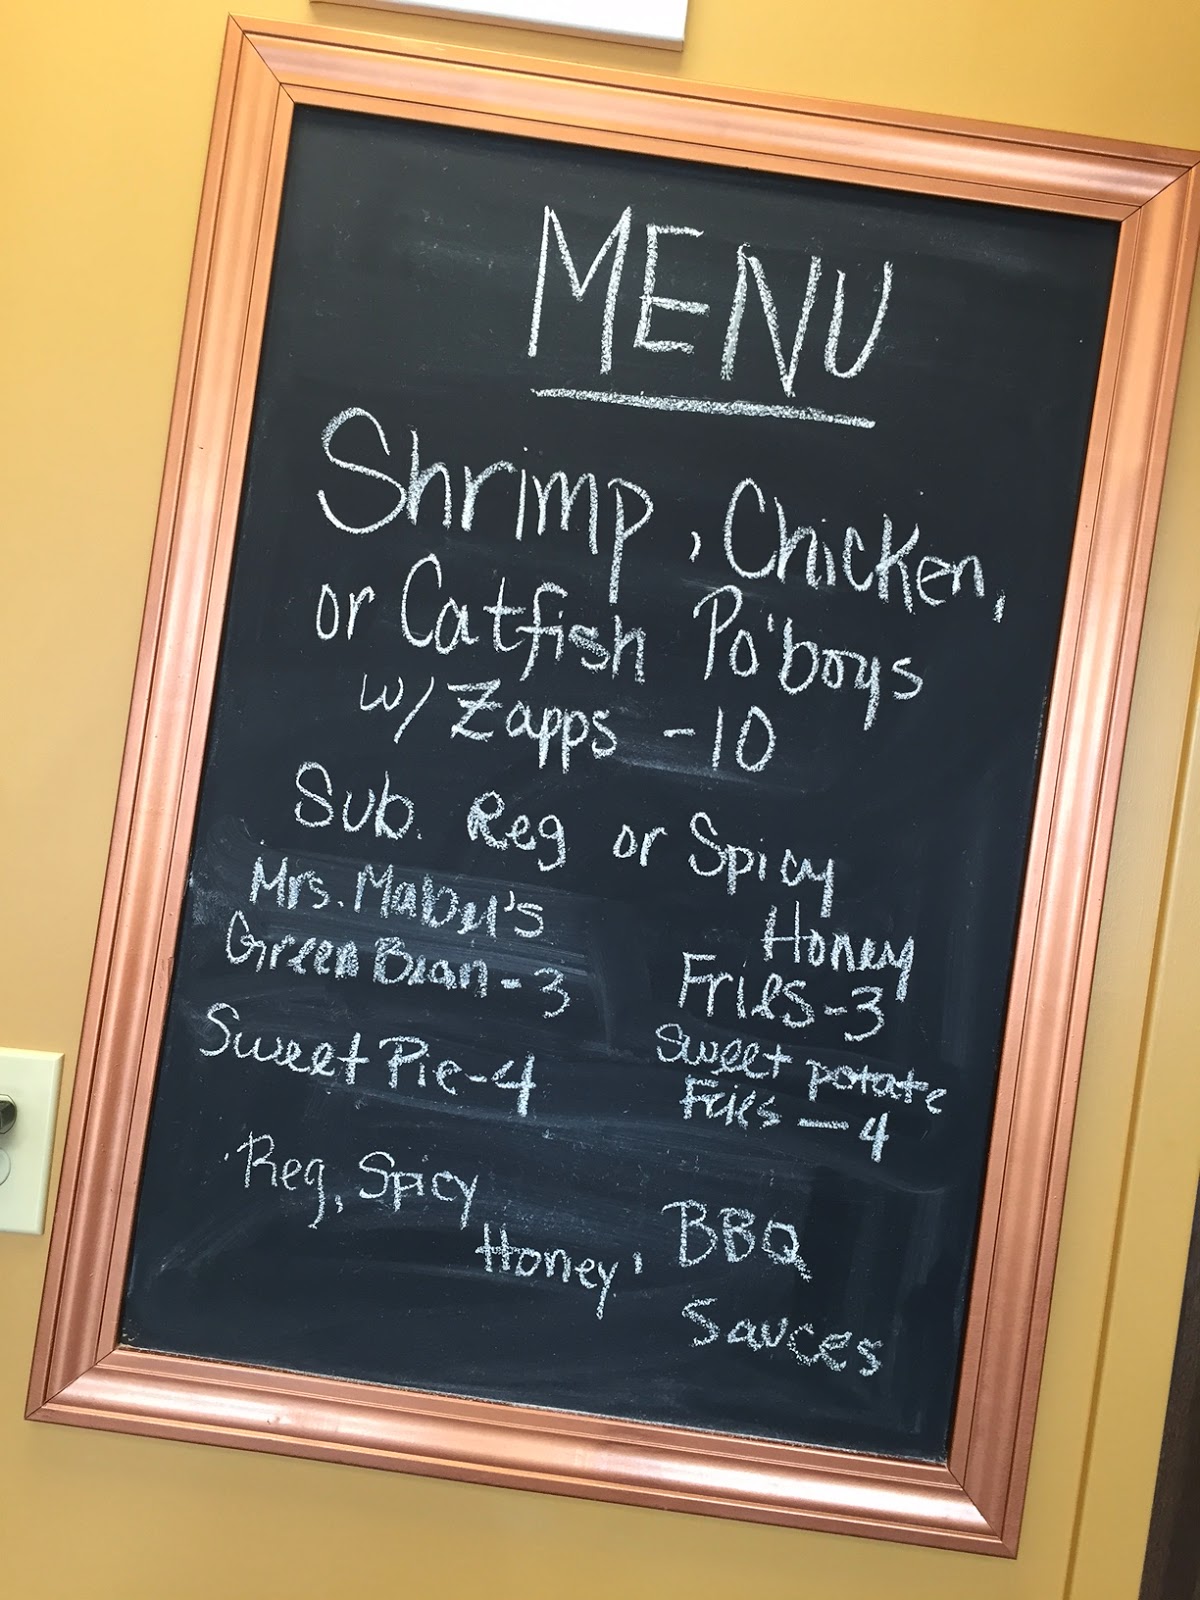 MENU
Shrimp, Chicken,
or Catfish Po'boys
w/ Zapps - 10
Sub. Reg or Spicy
Honey
Fries - 3
Mrs. Mabel's
Green Bean - 3
Sweet Pie - 4
Sweet potate
Fries - 4
Reg, Spicy
Honey, BBQ
Sauces